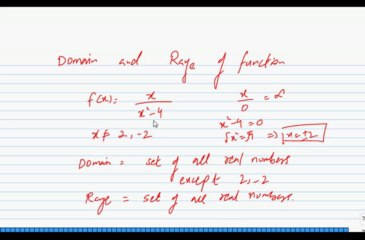 Domain and Rage of function
f(x) = x / x²-4
x / 0 = ∝
x²-4=0
x ≠ 2, -2
√x²=√4 ⇒ x=±2
Domain = set of all real numbers
except 2, -2
Rage = set of all real numbers.